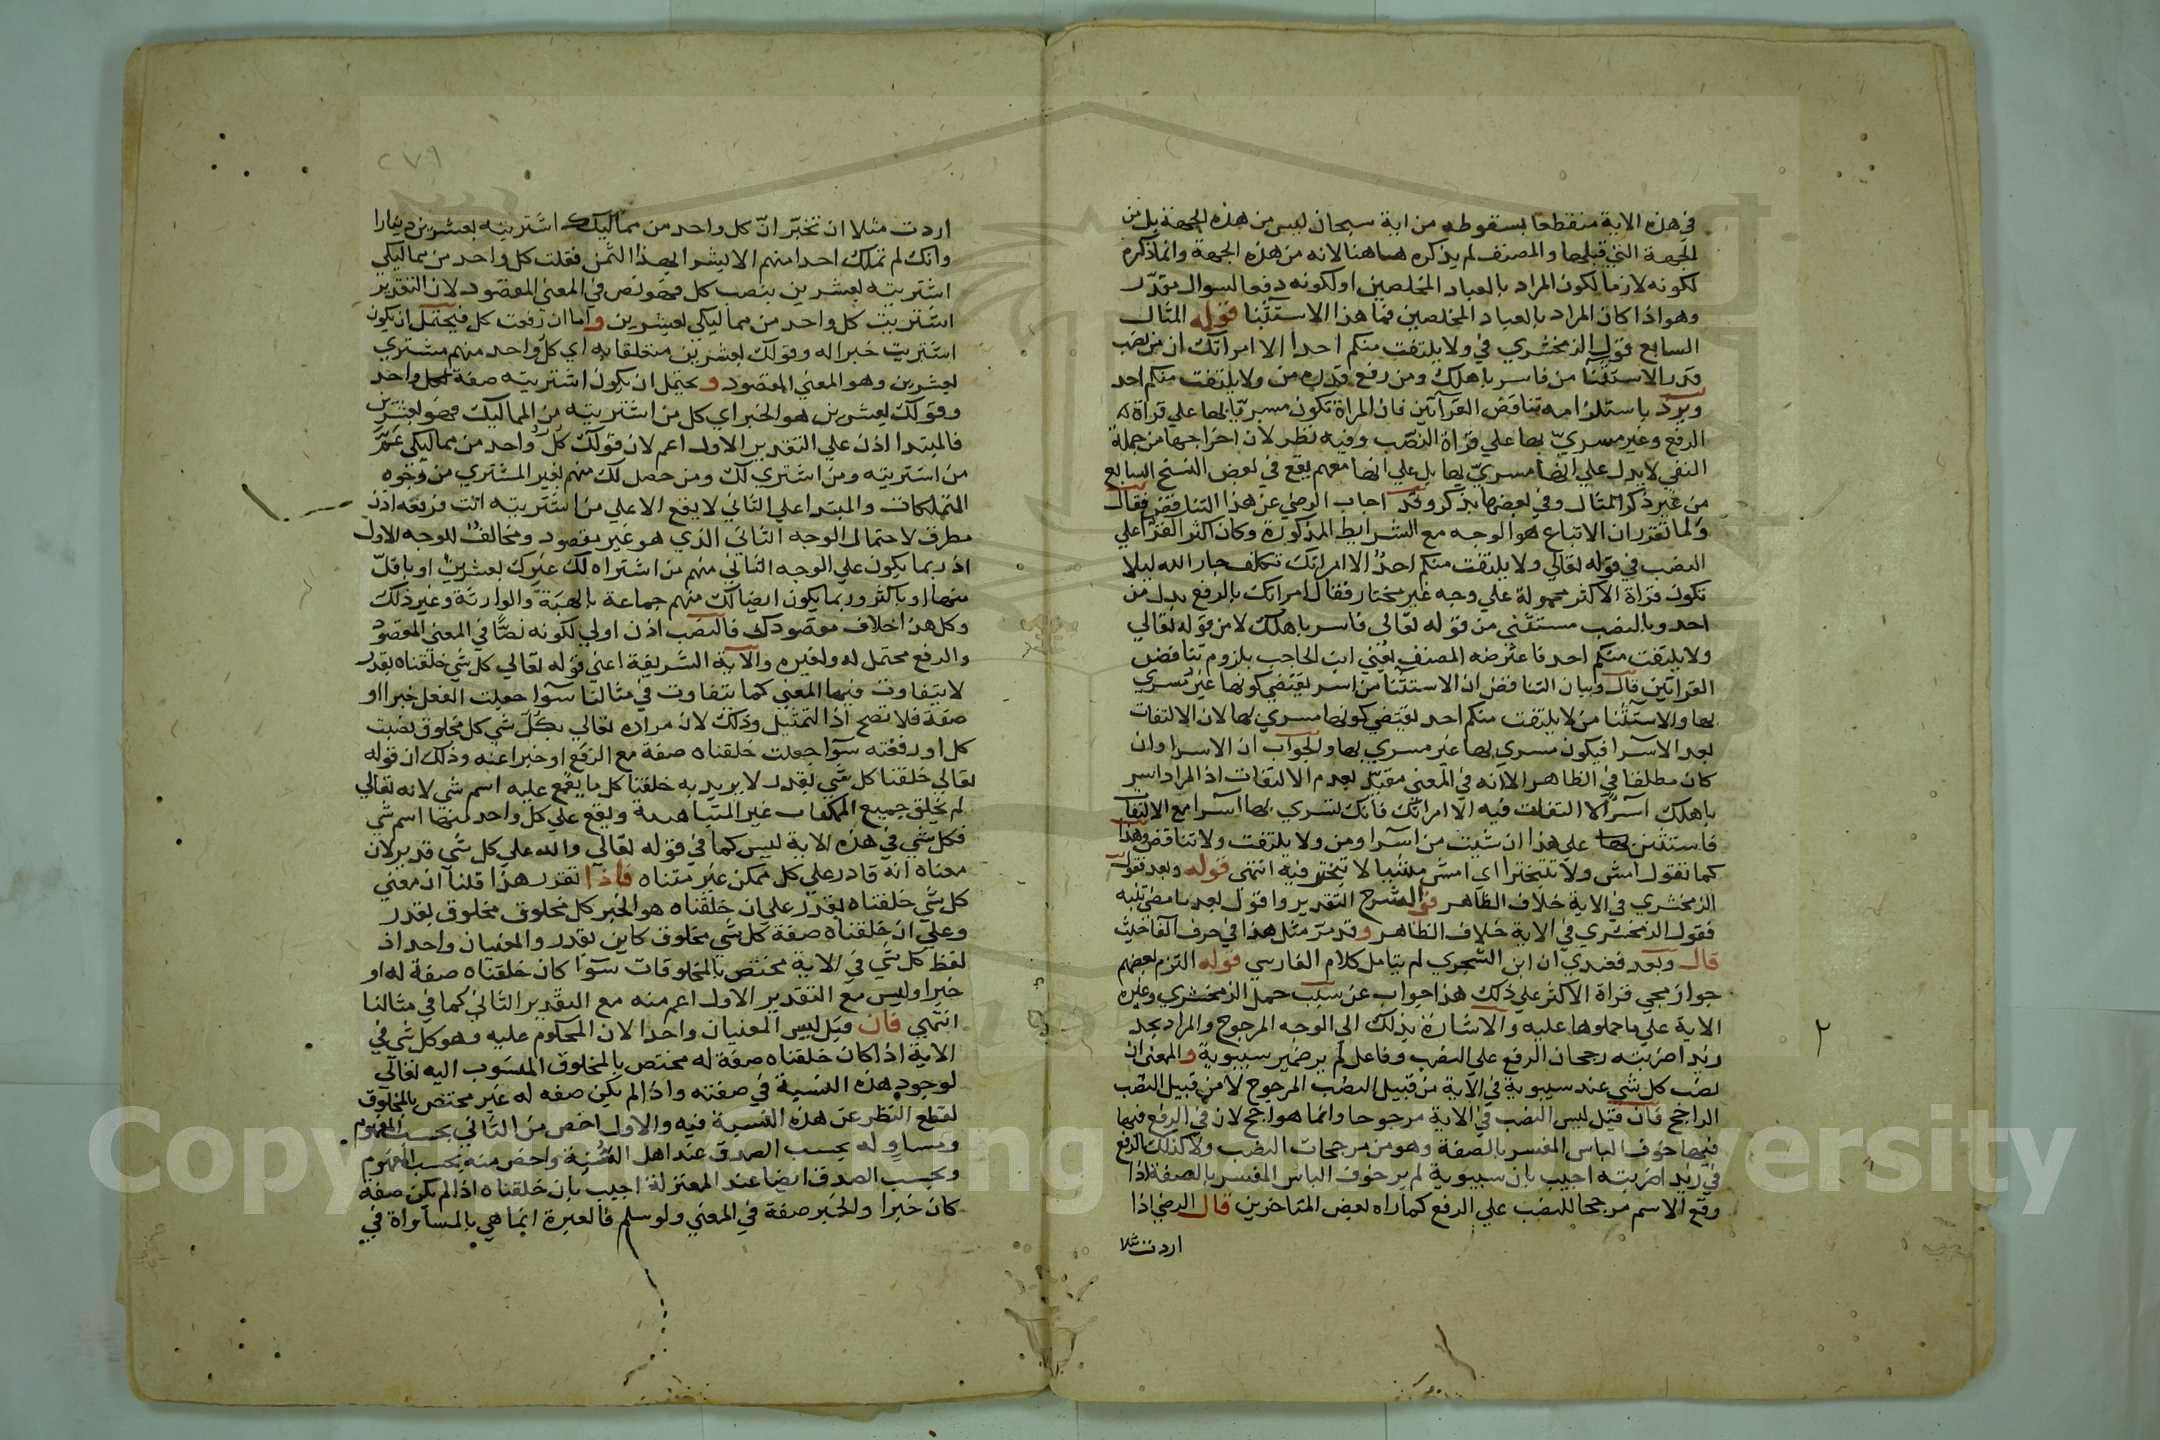 في هذه الاية منقطعا بسقوطه من اية سبحان ليس من هذه الجهة بل من
الجهة التي قبلها والمصنف لم يذكره هاهنا لانه من هذه الجهة وانما ذكره
لكونه لازما لكون المراد بالعباد المخلصين او لكونه دفعا لسوال مقدر
وهو اذا كان المراد بالعباد المخلصين فما هذا الاستثنا قوله المثال
السابع قول الزمخشري في ولا يلتفت منكم احدا الا امراتك ان من نصب
قدر الاستثنا من فاسر باهلك ومن رفع قدره من ولا يلتفت منكم احد
ويرد باستلزامه تناقض القراتين فان المراة تكون مسريا بها علي قراة
الرفع وغير مسري بها علي قراة النصب وفيه نظر لان اخراجها من جملة
النفي لا يدل علي انها مسري بها بل علي انها معهم يقع في بعض النسخ السابع
من غير ذكر المثال وفي بعضها يذكر وقد اجاب الرضي عن هذا التناقض فقال
ولما تقرر ان الاتباع هو الوجه مع الشرايط المذكورة وكان اكثر القرا علي
النصب في قوله تعالي ولا يلتفت منكم احد الا امراتك تكلف جار الله ليلا
تكون قراة الاكثر محمولة علي وجه غير مختار فقال امراتك بالرفع بدل من
احد وبالنصب مستثني من قوله تعالي فاسر باهلك لا من قوله تعالي
ولا يلتفت منكم احد فاعترضه المصنف يعني ابن الحاجب بلزوم تناقض
القراتين قال وبيان التناقض ان الاستثنا من اسر يقتضي كونها غير مسري
بها والاستثنا من لا يلتفت منكم احد يقتضي كونها مسري بها لان الالتفات
بعد الاسرا فيكون مسري بها غير مسري بها والجواب ان الاسرا وان
كان مطلقا في الظاهر الا انه في المعني مقيد بعدم الالتفات اذ المراد اسر
باهلك اسرا لا التفات فيه الا امراتك فانك تسري بها اسرا مع الالتفات
فاستثن علي هذا ان شيت من اسرا ومن ولا يلتفت ولا تناقض وهذا
كما تقول امش ولا تتبختر اي امش مشيا لا تبختر فيه انتهي قوله وبعد فقول
الزمخشري في الاية خلاف الظاهر في الشرح التقدير واقول بعد ما مضي تنبه
فقول الزمخشري في الاية خلاف الظاهر وقد مر مثل هذا في حرف الفا حيث
قال وبعد فعندي ان ابن الشجري لم يتامل كلام الفارسي قوله التزم بعضهم
جواز مجي قراة الاكثر علي ذلك هذا جواب عن سبب حمل الزمخشري وغيره
الاية علي ما حملوها عليه والاشارة بذلك الي الوجه المرجوح والمراد بجد
زيد اضربته رجحان الرفع علي النصب وفاعل لم ير ضمير سيبوية والمعني ان
نصب كل شي عند سيبوية في الاية من قبيل النصب المرجوح لا من قبيل النصب
الراجح فان قيل ليس النصب في الاية مرجوحا وانما هو راجح لان في الرفع فيها
فيها خوف الباس المفسر بالصفة وهو من مرجحات النصب ولا كذلك الرفع
في زيد اضربته اجيب بان سيبوية لم ير خوف الباس المفسر بالصفة اذا
وقع الاسم مرجحا للنصب علي الرفع كما راه بعض المتاخرين قال الرضي اذا
اردت مثلا
٢٧٩
اردت مثلا ان تخبر ان كل واحد من مماليك اشتريته بعشرين دينارا
وانك لم تملك احدا منهم الا بشرايه بهذا الثمن فقلت كل واحد من مماليكي
اشتريته بعشرين بنصب كل فهو نص في المعني المقصود لان التقدير
اشتريت كل واحد من مماليكي بعشرين واما ان رفعت كل فيحتمل ان يكون
اشتريت خبرا له وقولك بعشرين متعلقا به اي كل واحد منهم مشتري
بعشرين وهو المعني المقصود ويحتمل ان يكون اشتريته صفة لكل واحد
وقولك بعشرين هو الخبر اي كل من اشتريته من المماليك فهو بعشرين
فالمبتدا اذن علي التقدير الاول اعم لان قولك كل واحد من مماليكي عم
من اشتريته ومن اشتري لك ومن حصل لك منهم بغير المشتري من وجوه
التملكات والمبتدا علي الثاني لا يقع الا علي من اشتريته انت فرفعه اذن
مطرق لاحتمال الوجه الثاني الذي هو غير مقصود ومخالف للوجه الاول
اذ ربما يكون علي الوجه الثاني منهم من اشتراه لك غيرك بعشرين او باقل
منها او باكثر وربما يكون ايضا لك منهم جماعة بالهبة والوراثة وغير ذلك
وكل هذا خلاف مقصودك فالنصب اذن اولي لكونه نصا في المعني المقصود
والرفع محتمل له ولغيره والاية الشريفة اعني قوله تعالي كل شي خلقناه بقدر
لا يتفاوت فيها المعني كما يتفاوت في مثالنا سوا جعلت الفعل خبرا او
صفة فلا تصح اذا التمثيل وذلك لان مراده تعالي بكل شي كل مخلوق نصبت
كل او رفعته سوا جعلت خلقناه صفة مع الرفع او خبرا عنه وذلك ان قوله
تعالي خلقنا كل شي بقدر لا يريد به خلقنا كل ما يقع عليه اسم شي لانه تعالي
لم يخلق جميع الممكنات غير المتناهية ويقع علي كل واحد منها اسم شي
فكل شي في هذه الاية ليس كما في قوله تعالي والله علي كل شي قدير لان
معناه انه قادر علي كل ممكن غير متناه فاذا تقرر هذا قلنا ان معني
كل شي خلقناه بقدر علي ان خلقناه هو الخبر كل مخلوق مخلوق بقدر
وعلي ان خلقناه صفة كل شي مخلوق كاين بقدر والمعنيان واحد اذ
لفظ كل شي في الاية مختص بالمخلوقات سوا كان خلقناه صفة له او
خبرا وليس مع التقدير الاول اعم منه مع التقدير الثاني كما في مثالنا
انتهي فان قيل ليس المعنيان واحدا لان المحكوم عليه وهو كل شي في
الاية اذا كان خلقناه صفة له مختص بالمخلوق المنسوب اليه تعالي
لوجود هذه النسبة في صفته واذا لم يكن صفه له غير مختص بالمخلوق
لقطع النظر عن هذه النسبة فيه والاول اخص من الثاني بحسب المفهوم
ومساو له بحسب الصدق عند اهل السنة واخص منه بحسب المفهوم
وبحسب الصدق ايضا عند المعتزلة اجيب بان خلقناه اذا لم يكن صفه
كان خبرا والخبر صفة في المعني ولو سلم فالعبرة انما هي بالمساواة في